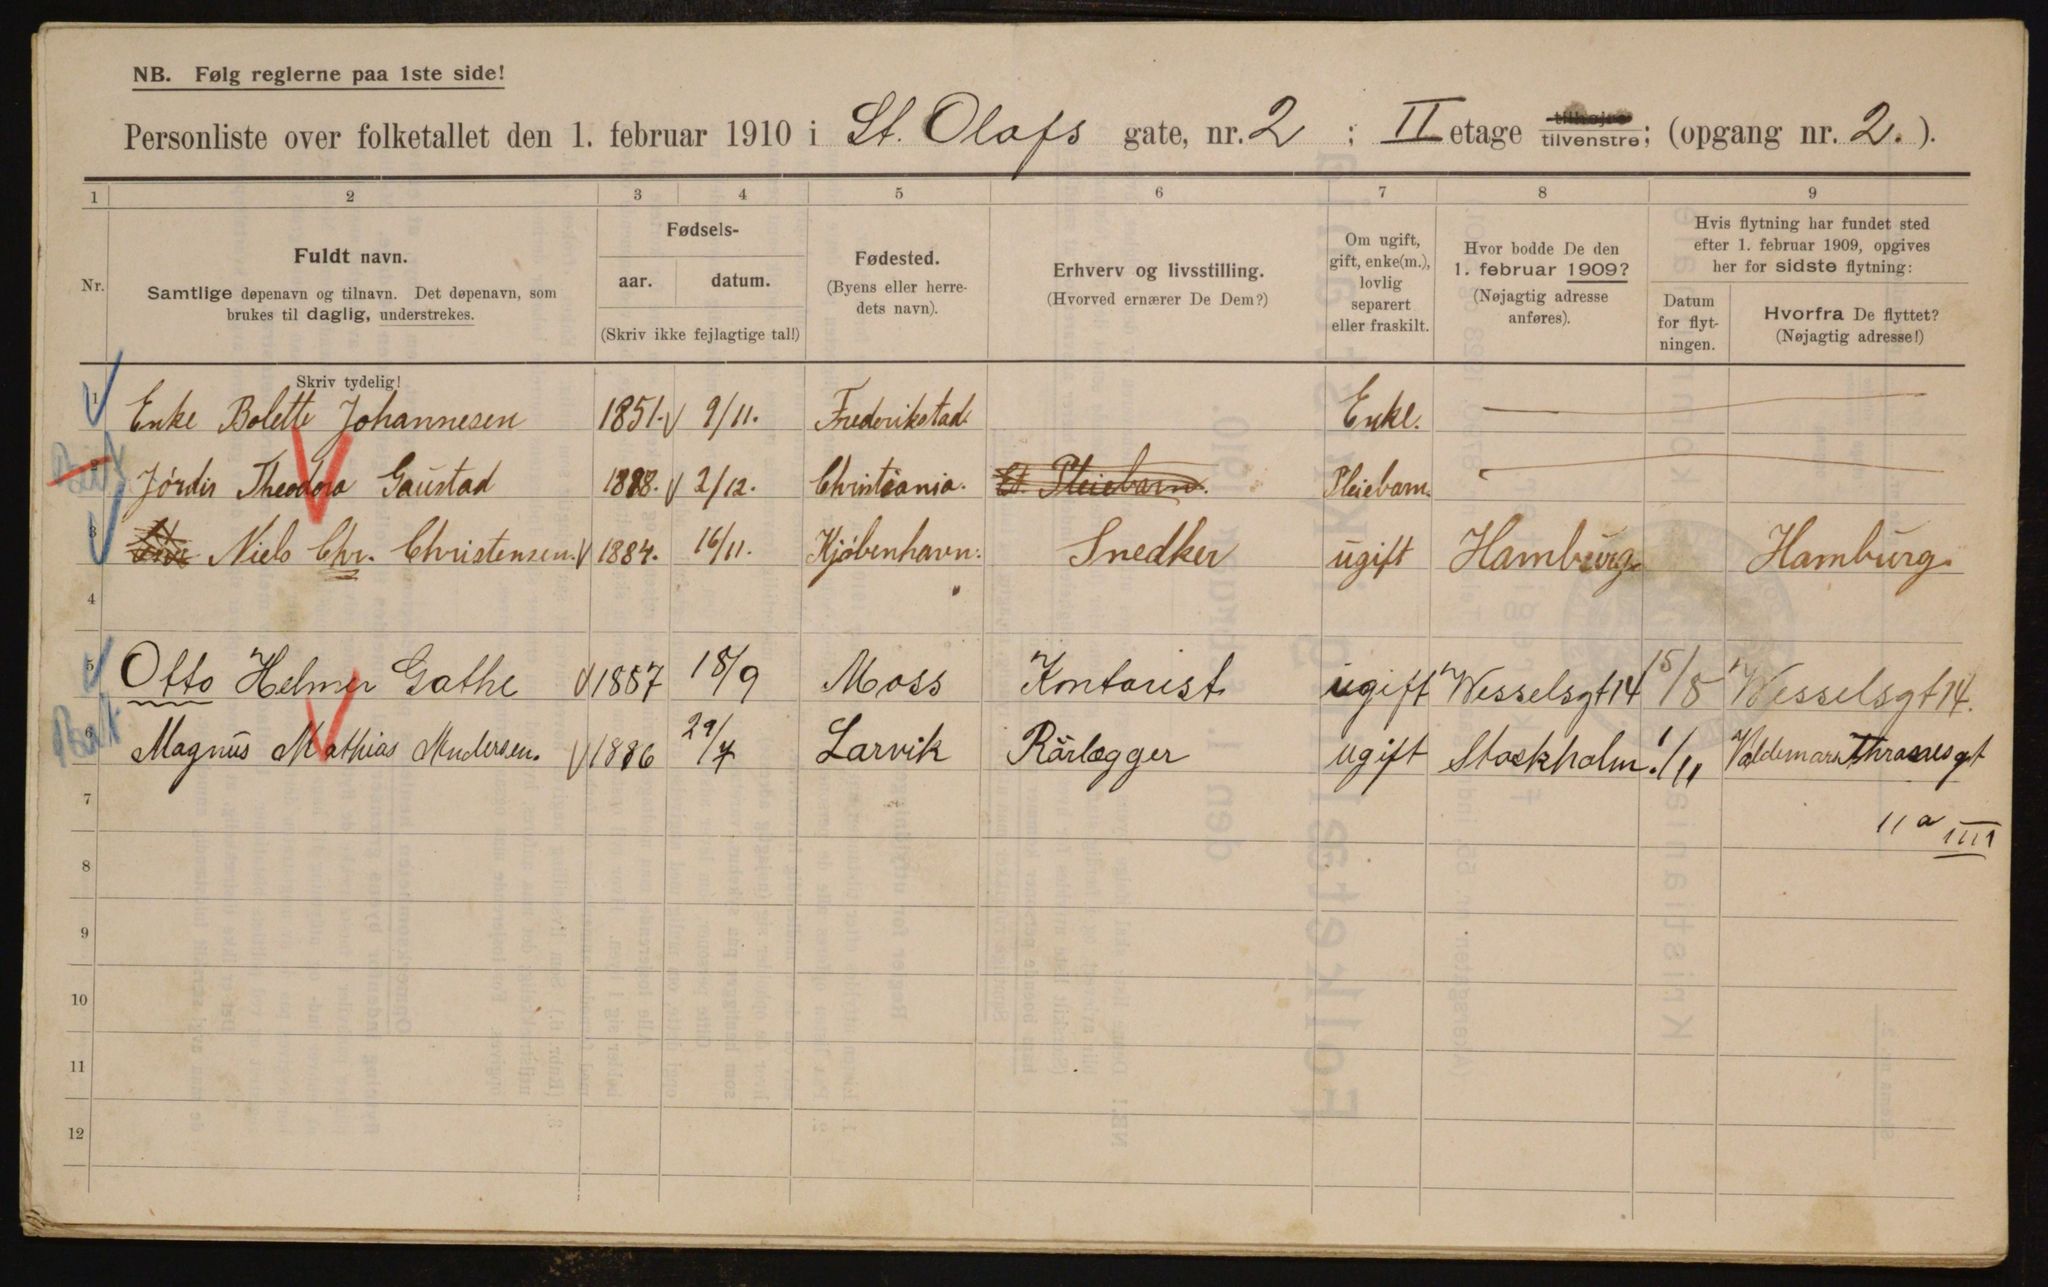 NB. Følg reglerne paa 1ste side!
Personliste over folketallet den 1. februar 1910 i St. Olafs gate, nr. 2 ; II etage tilhøjre tilvenstre; (opgang nr. 2. ).
1 2 3 4 5 6 7 8 9
Nr.
Fuldt navn.
Samtlige døpenavn og tilnavn. Det døpenavn, som
brukes til daglig, understrekes.
Fødsels-
aar. datum.
(Skriv ikke fejlagtige tal!)
Fødested.
(Byens eller herre-
dets navn).
Erhverv og livsstilling.
(Hvorved ernærer De Dem?)
Om ugift,
gift, enke(m.),
lovlig
separert
eller fraskilt.
Hvor bodde De den
1. februar 1909?
(Nøjagtig adresse
anføres).
Hvis flytning har fundet sted
efter 1. februar 1909, opgives
her for sidste flytning:
Datum
for flyt-
ningen.
Hvorfra De flyttet?
(Nøjagtig adresse!)
Skriv tydelig!
1 Enke Bolette Johannesen 1851. 9/11. Frederikstad. Enke.
2 Jórdis Theodora Gaustad 1888. 2/12. Christiania. Pleiebarn Pleiebarn.
3 Niels Chr. Christensen. 1884. 16/11. Kjøbenhavn. Snedker ugift Hamburg. Hamburg.
4
5 Otto Helmer Gathe 1887 18/9 Moss Kontorist ugift Wesselsgt 14 15/8 Wesselsgt 14.
6 Magnus Mathias Andersen. 1886 29/7 Larvik Rörlægger ugift Stockholm. 1/11 Valdemar Thranesgt
7
11a III
8
9
10
11
12